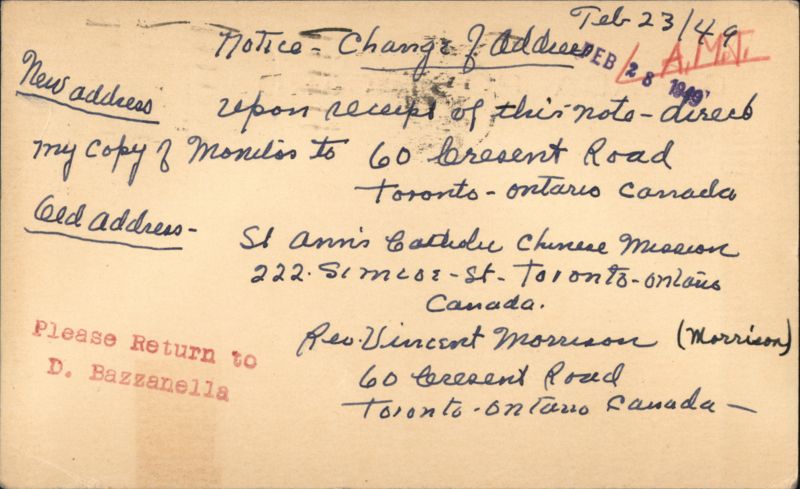 Feb 23/49
Notice - Change of address
FEB 28 1949
A.M.T.
New address
upon receipt of this note - direct
my copy of Monitor to 60 Cresent Road
Toronto - Ontario Canada
Old address -
St Ann's Catholic Chinese Mission
222. Simcoe - St - Toronto - Ontario
Canada.
Rev. Vincent Morrison (Morrison)
60 Cresent Road
Toronto - Ontario Canada —
Please Return to
D. Bazzanella